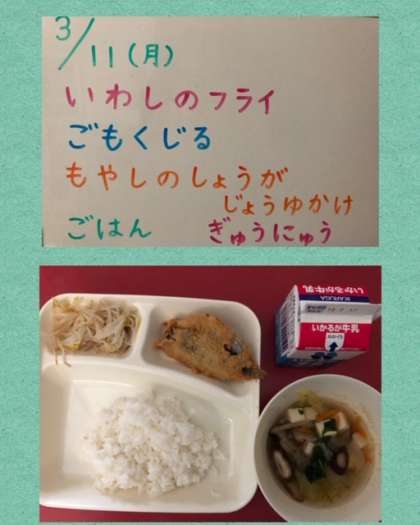 3/11(月)
いわしのフライ
ごもくじる
もやしのしょうが
じょうゆかけ
ごはん ぎゅうにゅう
いかるが牛乳
IKARUGA
いかるが牛乳